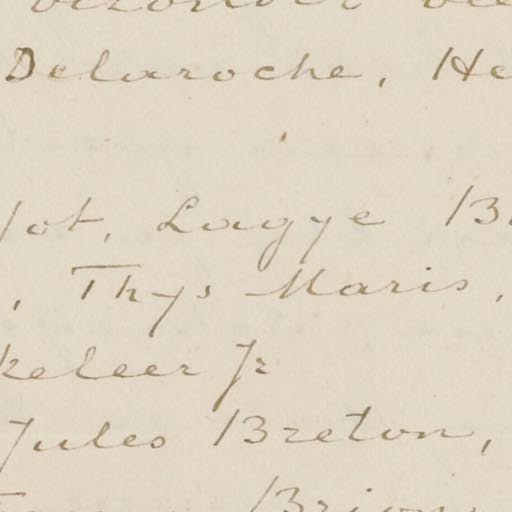 Delaroche, He
Lagye
, Thys Maris,
keleer Jr
Jules Breton,
Brion